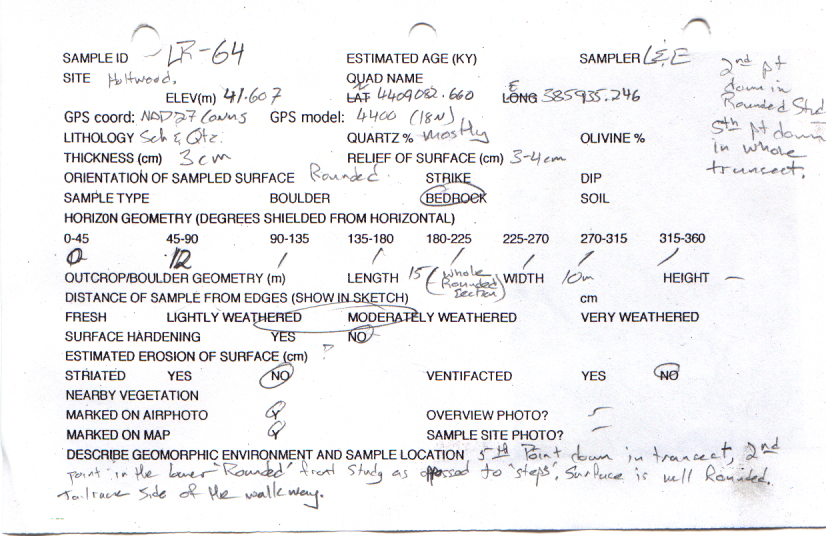 SAMPLE ID - LR-64 ESTIMATED AGE (KY) SAMPLER L&E
SITE Holtwood. QUAD NAME
ELEV(m) 41.607 LAT N 4409082.660 LONG E 385935.246
2nd pt
down in
Rounded Stud
5th pt down
in whole
transect.
GPS coord: NAD27 Conus GPS model: 4400 (18N)
LITHOLOGY Sch & Qtz. QUARTZ % mostly OLIVINE %
THICKNESS (cm) 3cm RELIEF OF SURFACE (cm) 3-4cm
ORIENTATION OF SAMPLED SURFACE Rounded. STRIKE DIP
SAMPLE TYPE BOULDER BEDROCK SOIL
HORIZON GEOMETRY (DEGREES SHIELDED FROM HORIZONTAL)
0-45 45-90 90-135 135-180 180-225 225-270 270-315 315-360
0 12 / / / / /
OUTCROP/BOULDER GEOMETRY (m) LENGTH 15 (whole Rounded Section) WIDTH 10m HEIGHT -
DISTANCE OF SAMPLE FROM EDGES (SHOW IN SKETCH) cm
FRESH LIGHTLY WEATHERED MODERATELY WEATHERED VERY WEATHERED
SURFACE HARDENING YES NO
ESTIMATED EROSION OF SURFACE (cm) ?
STRIATED YES NO VENTIFACTED YES NO
NEARBY VEGETATION
MARKED ON AIRPHOTO Y OVERVIEW PHOTO? -
MARKED ON MAP Y SAMPLE SITE PHOTO? -
DESCRIBE GEOMORPHIC ENVIRONMENT AND SAMPLE LOCATION 5th Point down in trancect, 2nd
point in the lower "Rounded" front Study as opposed to "steps". Surface is well Rounded.
Tailrace side of the walkway.